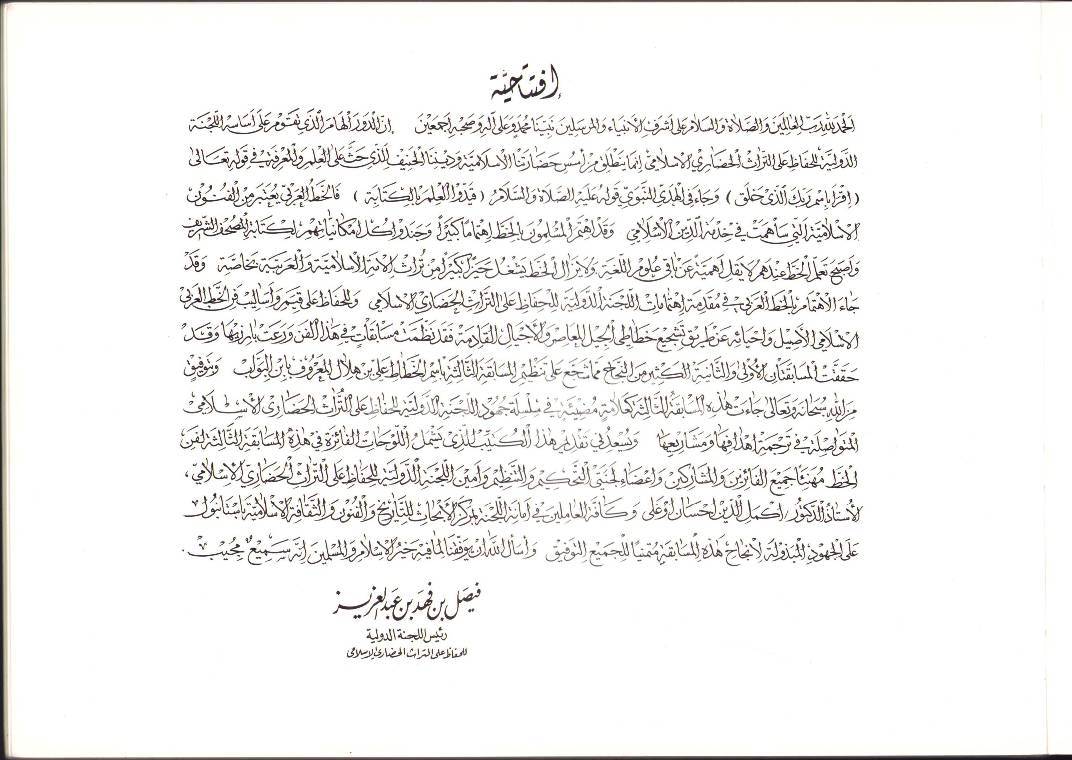 إفتتاحية
الحمد لله رب العالمين والصلاة والسلام على أشرف الأنبياء والمرسلين نبينا محمد وعلى آله وصحبه أجمعين إن الدور الهام الذي تقوم على أساسه اللجنة
الدولية للحفاظ على التراث الحضاري الإسلامي إنما ينطلق من أسس حضارتنا الإسلامية وديننا الحنيف الذي حث على العلم والمعرفة في قوله تعالى
( إقرأ باسم ربك الذي خلق ) وجاء في الهدي النبوي قوله عليه الصلاة والسلام ( قيدوا العلم بالكتابة ) فالخط العربي يعتبر من الفنون
الإسلامية التي ساهمت في خدمة الدين الإسلامي وقد اهتم المسلمون بالخط اهتماماً كبيراً وجندوا كل إمكانياتهم لكتابة المصحف الشريف
وأصبح تعلم الخط عندهم لا يقل أهمية عن باقي علوم اللغة ولا يزال الخط يشغل حيزاً كبيراً من تراث الأمة الإسلامية والعربية بخاصة وقد
جاء الاهتمام بالخط العربي في مقدمة إهتمامات اللجنة الدولية للحفاظ على التراث الحضاري الإسلامي وللحفاظ على قيم وأساليب فن الخط العربي
الإسلامي الأصيل وإحيائه عن طريق تشجيع خطاطي الجيل المعاصر والأجيال القادمة فقد نظمت مسابقات في هذا الفن ورعت بارزيها وقد
حققت المسابقتان الأولى والثانية الكثير من النجاح مما شجع على تنظيم المسابقة الثالثة باسم الخطاط علي بن هلال المعروف بابن البواب وبتوفيق
من الله سبحانه وتعالى جاءت هذه المسابقة الثالثة كعلامة مضيئة في سلسلة جهود اللجنة الدولية للحفاظ على التراث الحضاري الإسلامي
المتواصلة في ترجمة أهدافها ومشاريعها ويسعدني تقديم هذا الكتيب الذي يشمل اللوحات الفائزة في هذه المسابقة الثالثة لفن
الخط مهنئاً جميع الفائزين والمشاركين وأعضاء لجنتي التحكيم والتنظيم وأمين اللجنة الدولية للحفاظ على التراث الحضاري الإسلامي ،
الأستاذ الدكتور/ أكمل الدين إحسان أوغلي وكافة العاملين في أمانة اللجنة بمركز الأبحاث للتاريخ والفنون والثقافة الإسلامية باستانبول
على الجهود المبذولة لإنجاح هذه المسابقة متمنياً للجميع التوفيق وأسأل الله أن يوفقنا لما فيه خير الإسلام والمسلمين إنه سميع مجيب .
فيصل بن فهد بن عبدالعزيز
رئيس اللجنة الدولية
للحفاظ على التراث الحضاري الإسلامي